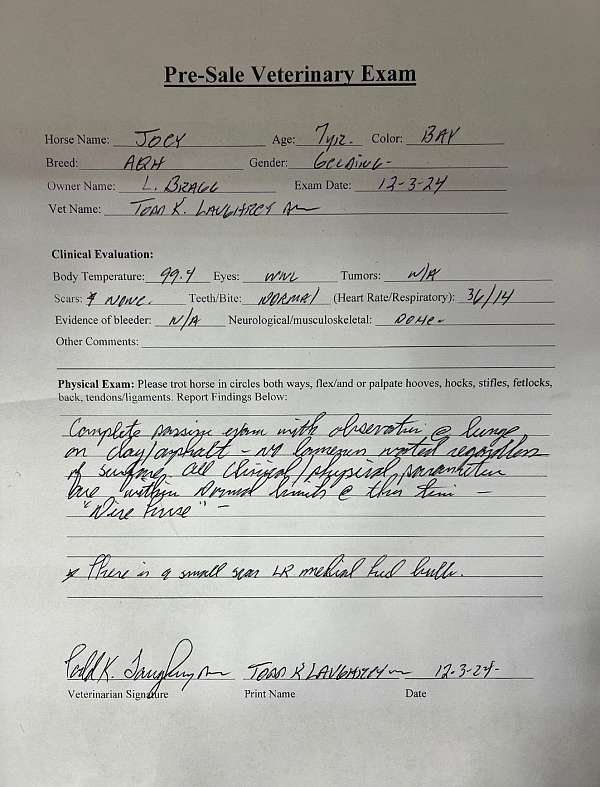 Pre-Sale Veterinary Exam
Horse Name: JOEY Age: 7yr. Color: BAY
Breed: AQH Gender: GELDING-
Owner Name: L. BRAGG Exam Date: 12-3-24
Vet Name: TODD K. LAUGHREY
Clinical Evaluation:
Body Temperature: 99.4 Eyes: WNL Tumors: N/A
Scars: * NONE. Teeth/Bite: NORMAL (Heart Rate/Respiratory): 36/14
Evidence of bleeder: N/A Neurological/musculoskeletal: NONE-
Other Comments:
Physical Exam: Please trot horse in circles both ways, flex/and or palpate hooves, hocks, stifles, fetlocks,
back, tendons/ligaments. Report Findings Below:
Complete passive exam with observation @ lunge
on clay/asphalt - no lameness noted regardless
of surface, all clinical/physical parameters
are within normal limits @ this time -
"Nice horse" -
* There is a small scar LR medial heel bulb.
Todd K. Laughrey TODD K LAUGHREY 12-3-24-
Veterinarian Signature Print Name Date